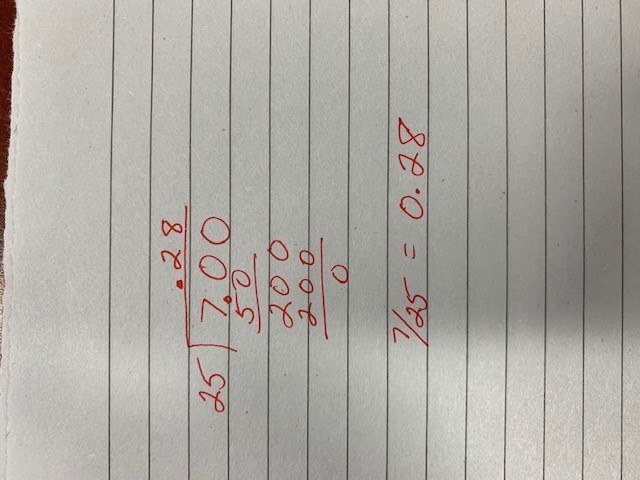 .28
25)7.00
50
200
200
0
7/25 = 0.28